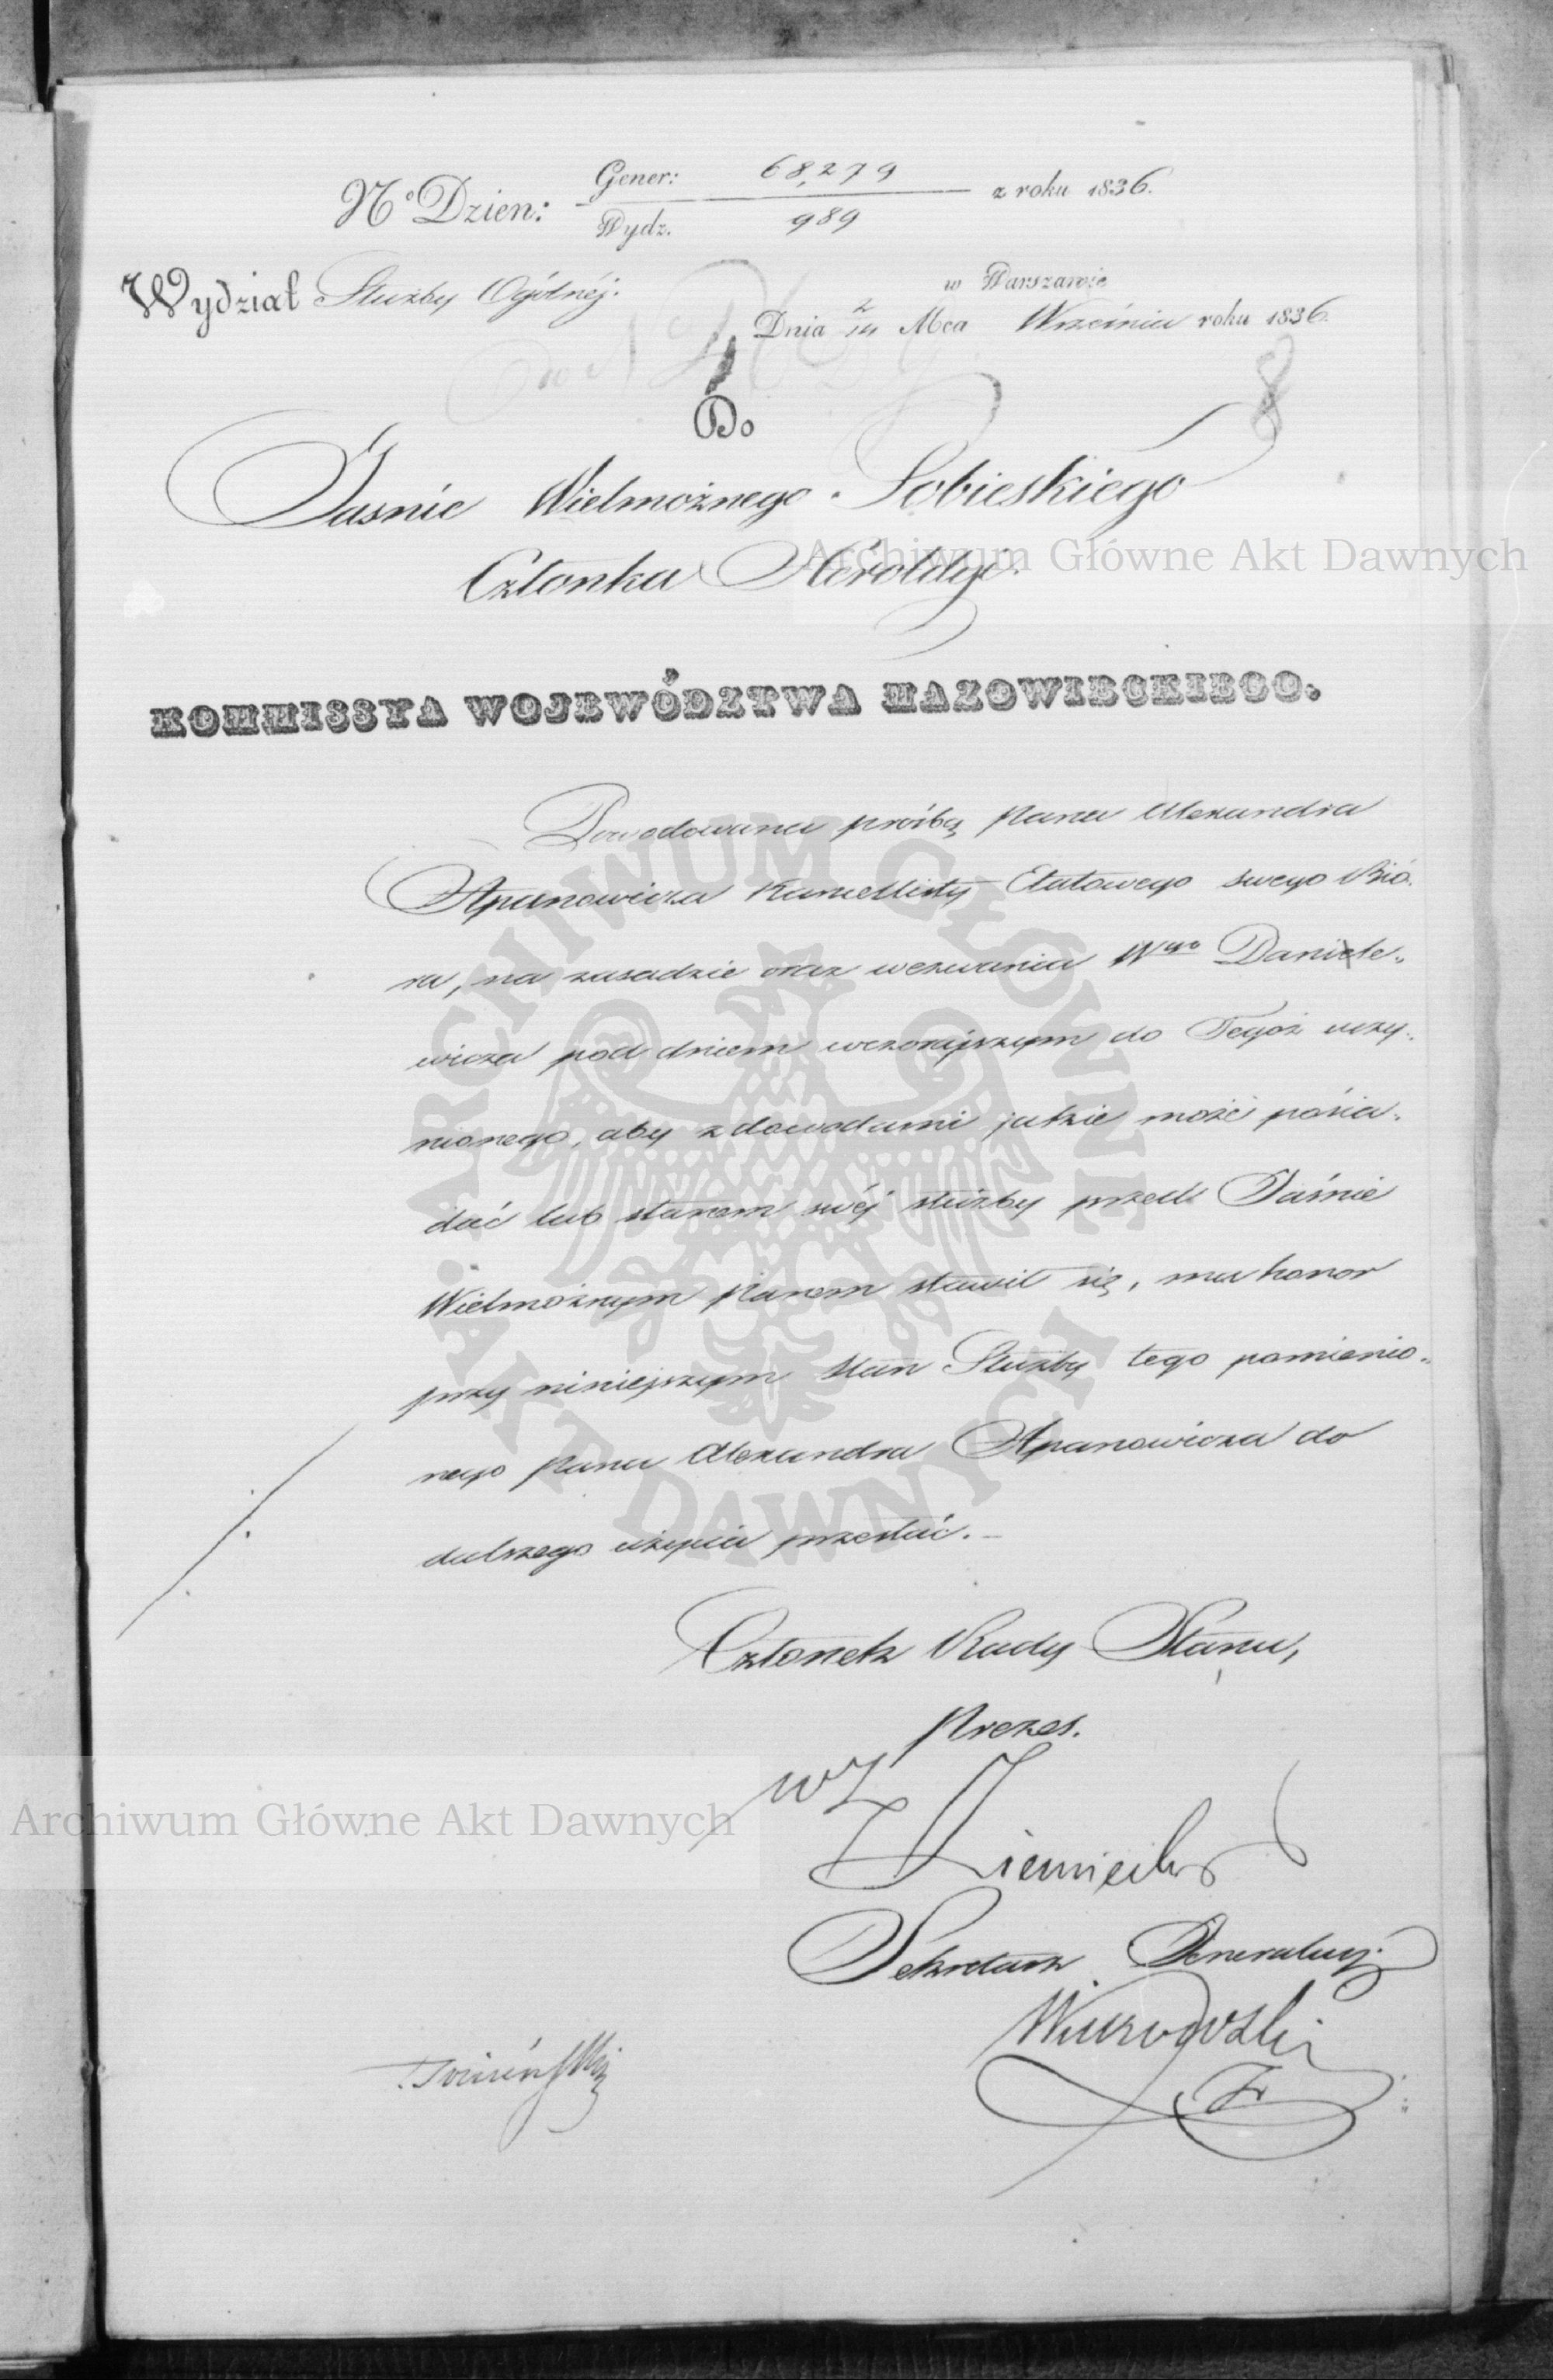 No Dzien: Gener: 68,279 z roku 1836.
Wydz. 989
Wydział Służby Ogólnéj.
w Warszawie
Dnia 2/14 Mca Września roku 1836.
8
Do
Jasnie Wielmożnego Sobieskiego
Członka Heroldyi.
KOMMISSYA WOJEWÓDZTWA MAZOWIECKIEGO.
Powodowana prośbą Pana Alexandra
Apanowicza Kancellisty Etatowego swego Bió-
ra, na zasadzie oraz wezwania Wgo Daniele-
wicza pod dniem wczorajszym do Tegoż uczy-
nionego, aby z dowodami jakie może posia-
dać lub stanem swéj służby przed Jaśnie
Wielmożnym Panem stawił się, ma honor
przy niniejszym Stan Służby tego pomienio-
nego Pana Alexandra Apanowicza do
dalszego użycia przesłać. –
Członek Rady Stanu,
Prezes.
wz
Sekretarz Generalny
Archiwum Główne Akt Dawnych
ARCHIWUM GŁÓWNE AKT DAWNYCH
Archiwum Główne Akt Dawnych